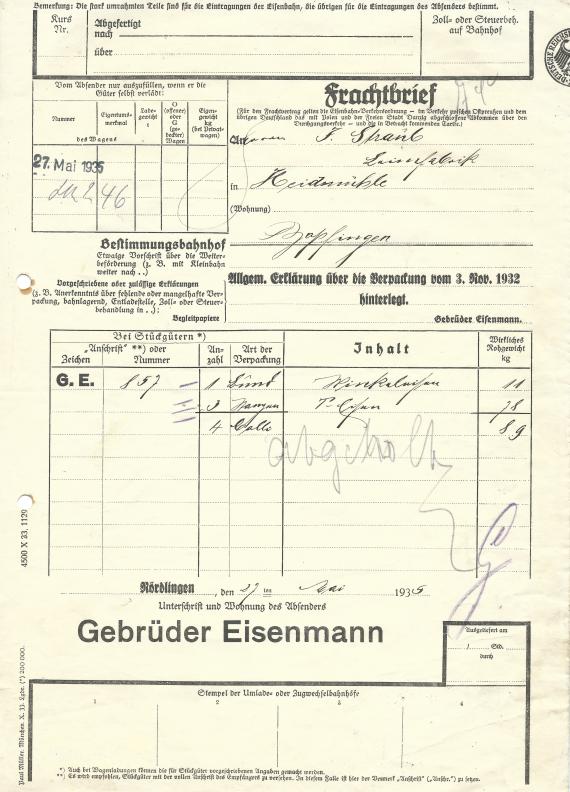 Bemerkung: Die stark umrahmten Teile sind für die Eintragungen der Eisenbahn, die übrigen für die Eintragungen des Absenders bestimmt.
Kurs Nr.
Abgefertigt
nach
über
Zoll- oder Steuerbeh.
auf Bahnhof
Vom Absender nur auszufüllen, wenn er die
Güter selbst verlädt:
Nummer
Eigentums-
merkmal
des Wagens
Lade-
gewicht
t
O
(offener)
oder
G
(ge-
deckter)
Wagen
Eigen-
gewicht
kg
(bei Privat-
wagen)
27. Mai 1935
46
Frachtbrief
(Für den Frachtvertrag gelten die Eisenbahn-Verkehrsordnung – im Verkehr zwischen Ostpreußen und dem
übrigen Deutschland das mit Polen und der Freien Stadt Danzig abgeschlossene Abkommen über den
Durchgangsverkehr – und die in Betracht kommenden Tarife.)
An Herrn J. Straub
Leimfabrik
in Heidmühle
(Wohnung)
Bopfingen
Bestimmungsbahnhof
Etwaige Vorschrift über die Weiter-
beförderung (z. B. mit Kleinbahn
weiter nach . .)
Vorgeschriebene oder zulässige Erklärungen
(z. B. Anerkenntnis über fehlende oder mangelhafte Ver-
packung, bahnlagernd, Entladestelle, Zoll- oder Steuer-
behandlung in . .);
Begleitpapiere
Allgem. Erklärung über die Verpackung vom 3. Nov. 1932
hinterlegt.
Gebrüder Eisenmann.
Bei Stückgütern *)
Zeichen
„Anschrift" **) oder
Nummer
An-
zahl
Art der
Verpackung
Inhalt
Wirkliches
Rohgewicht
kg
G. E. 857 1 Bund Winkeleisen 11
3 Stangen T-Eisen 78
4 Colli 89
abgeholt
Nördlingen, den 27 ten Mai 1935
Unterschrift und Wohnung des Absenders
Gebrüder Eisenmann
Ausgeliefert am
Std.
durch
Stempel der Umlade- oder Zugwechselbahnhöfe
1 2 3 4
*) Auch bei Wagenladungen können die für Stückgüter vorgeschriebenen Angaben gemacht werden.
**) Es wird empfohlen, Stückgüter mit der vollen Anschrift des Empfängers zu versehen. In diesem Falle ist hier der Vermerk „Anschrift" („Anschr.") zu setzen.
4500 X 33. 1120
Paul Müller, München. X. 33. Lgde. (*) 200 000.